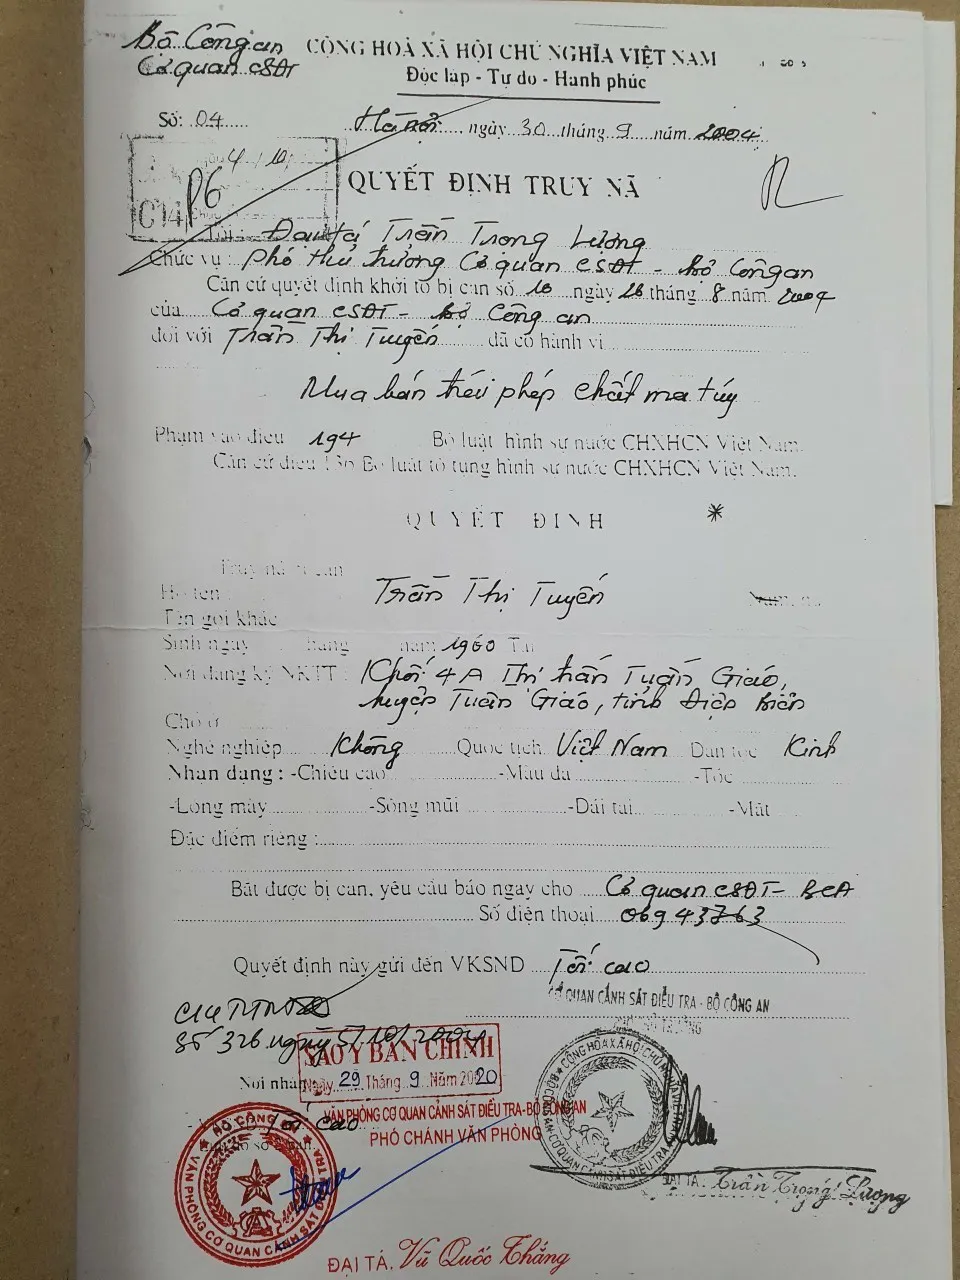 Bộ Công an
CỘNG HOÀ XÃ HỘI CHỦ NGHĨA VIỆT NAM
Cơ quan CSĐT
Độc lập - Tự do - Hạnh phúc
Số: 04
Hà Nội, ngày 30 tháng 9 năm 2004
4/10
C14 P6
QUYẾT ĐỊNH TRUY NÃ
Tôi: Đại tá Trần Trọng Lượng
Chức vụ: Phó thủ trưởng Cơ quan CSĐT - Bộ Công an
Căn cứ quyết định khởi tố bị can số 10 ngày 26 tháng 8 năm 2004
của Cơ quan CSĐT - Bộ Công an
đối với Trần Thị Tuyến đã có hành vi
Mua bán trái phép chất ma túy
Phạm vào điều 194 Bộ luật hình sự nước CHXHCN Việt Nam.
Căn cứ điều Bộ luật tố tụng hình sự nước CHXHCN Việt Nam.
QUYẾT ĐỊNH
Truy nã bị can
Họ tên: Trần Thị Tuyến
Tên gọi khác
Sinh ngày tháng năm 1960 Tại
Nơi đăng ký NKTT: Khối 4A Thị trấn Tuần Giáo,
huyện Tuần Giáo, tỉnh Điện Biên
Chỗ ở
Nghề nghiệp Không Quốc tịch Việt Nam Dân tộc Kinh
Nhận dạng: -Chiều cao -Màu da -Tóc
-Lông mày -Sống mũi -Dái tai -Mắt
Đặc điểm riêng:
Bắt được bị can, yêu cầu báo ngay cho Cơ quan CSĐT - BCA
Số điện thoại 069 43763
Quyết định này gửi đến VKSND Tối cao
CƠ QUAN CẢNH SÁT ĐIỀU TRA - BỘ CÔNG AN
PHÓ THỦ TRƯỞNG
Số 326 ngày 5/10/2004
SAO Y BẢN CHÍNH
Nơi nhận
Ngày 29 Tháng 9 Năm 2020
VĂN PHÒNG CƠ QUAN CẢNH SÁT ĐIỀU TRA-BỘ CÔNG AN
Tối cao
PHÓ CHÁNH VĂN PHÒNG
BỘ CÔNG AN
VĂN PHÒNG CƠ QUAN CẢNH SÁT ĐIỀU TRA
ĐẠI TÁ. Trần Trọng Lượng
ĐẠI TÁ. Vũ Quốc Thắng